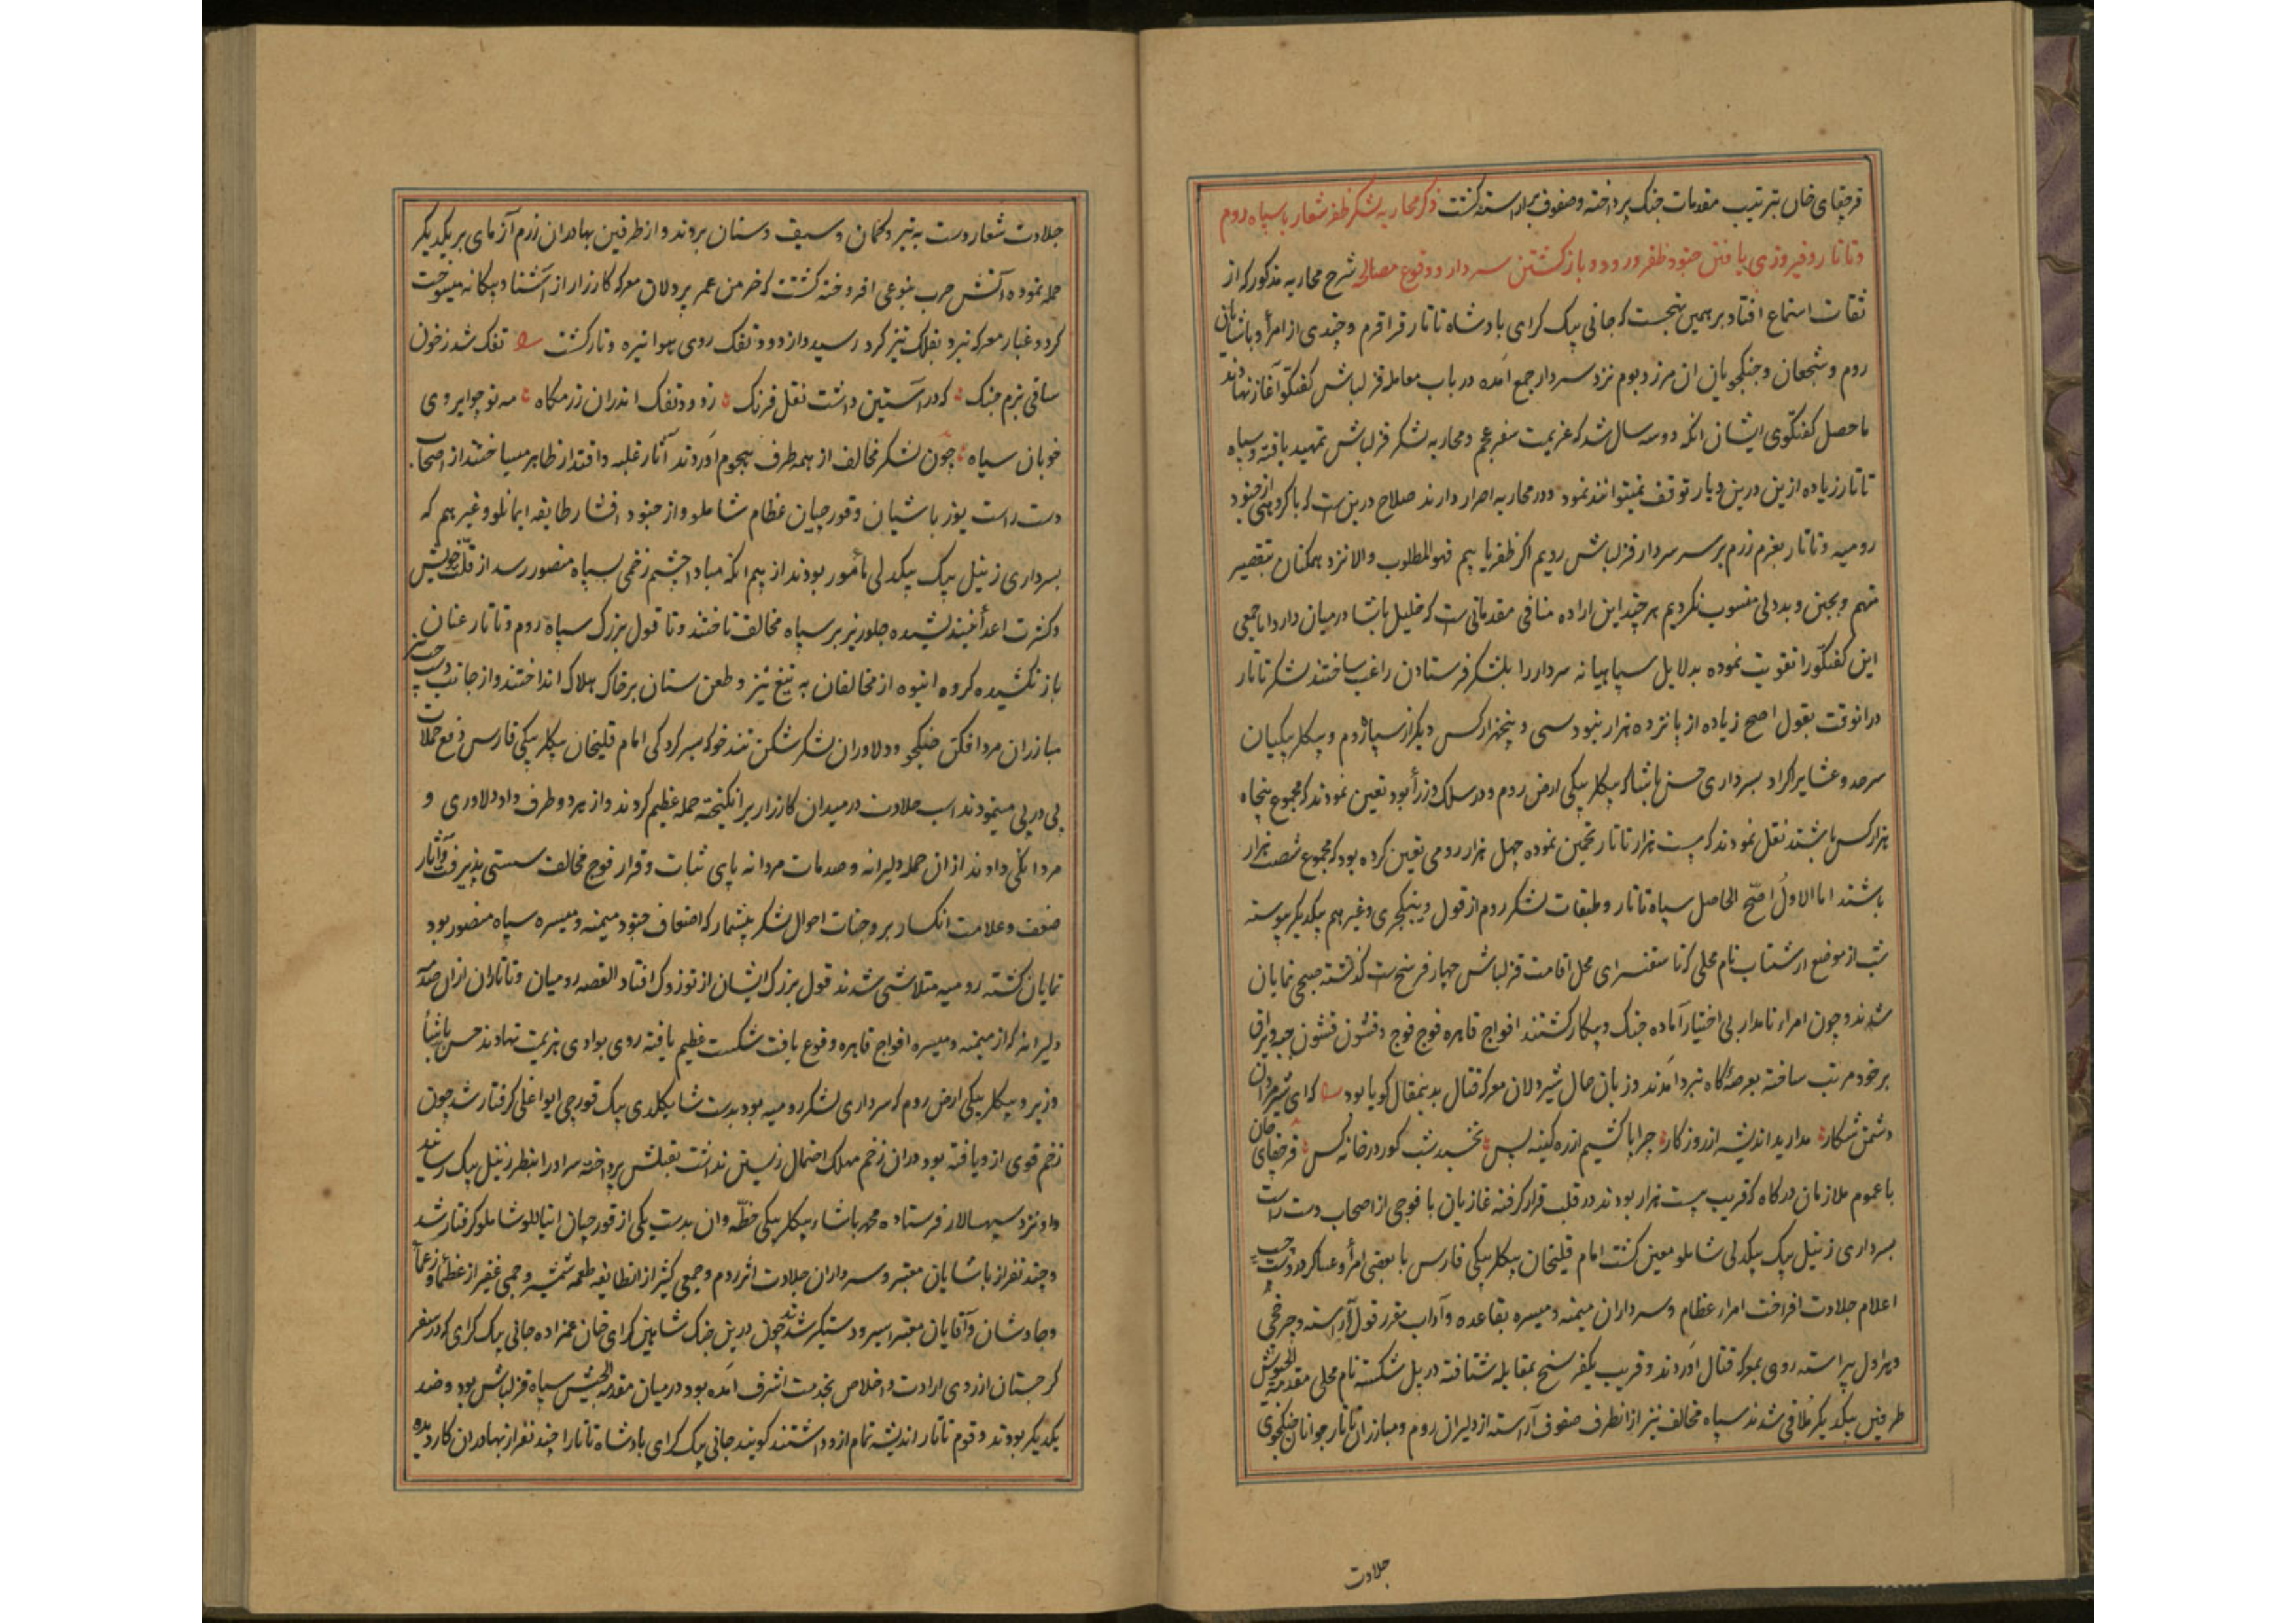 قرچقای خان بترتیب مقدمات جنک پرداخته و صفوف برآراسته کشت ذکر محاربه لشکر ظفر شعار با سپاه روم
و تاتار و فیروزی یافتن جنود ظفر ورود و بازکشتن سردار و وقوع مصالحه شرح محاربه مذکور که از
ثقات استماع افتاد بر همین نهجست که جانی بیک کرای پادشاه تاتار قراقرم و چندی از امرأ و پاشایان
روم و شجعان و جنکجویان ان مرز و بوم نزد سردار جمع آمده در باب معامله قزلباش کفتکو آغاز نهادند
ماحصل کفتکوی ایشان انکه دو سه سال شد که عزیمت سفر عجم و محاربه لشکر قزلباش تمهید یافته و سپاه
تاتار زیاده ازین درین دیار توقف نمیتوانند نمود و در محاربه اصرار دارند صلاح درین ست که با کروهی از جنود
رومیه و تاتار بعزم رزم بر سر سردار قزلباش رویم اکر ظفر یابیم فهو المطلوب والا نزد همکنان بتقصیر
متهم و بجبن و بددلی منسوب نکردیم هر چند این اراده منافی مقدماتی ست که خلیل پاشا در میان دارد اما جمعی
این کفتکو را تقویت نموده بدلایل سپاهیانه سردار را بلشکر فرستادن راغب ساختند لشکر تاتار
در انوقت بقول اصح زیاده از پانزده هزار نبود و سی و پنجهزار کس دیکر از سپاه روم و بیکلربیکیان
سرحد و عشایر اکراد بسرداری حسن پاشا که بیکلربیکی ارض روم و در سلک وزرأ بود تعین نمودند که مجموع پنجاه
هزار کس باشند نقل نمودند که بیست هزار تاتار تخمین نموده چهل هزار رومی تعین کرده بود که مجموع شصت هزار
باشند اما الاول اصح الحاصل سپاه تاتار و طبقات لشکر روم از قول و ینکچری و غیرهم بیکدیکر پیوسته
شب از موضع ارشتاب نام محلی که تا سقنسرای محل اقامت قزلباش چهار فرسخ ست کذشته صبحی نمایان
شدند و چون امراء نامدار بی اختیار آماده جنک و پیکار کشتند افواج قاهره فوج فوج و قشون قشون جبه و یراق
بر خود مرتب ساخته بعرصه کاه نبرد آمدند و زبان حال شیردلان معرکه قتال بدینمقال کویا بود که ای شیرمردان
دشمن شکار مدارید اندیشه از روزکار چرا پا کشیم از ره کینه پس نخسبد شب کور در خانه کس قرچقای خان
با عموم ملازمان درکاه که قریب بیست هزار بودند در قلب قرار کرفته غازیان با فوجی از اصحاب دست راست
بسرداری زینل بیک بیکدلی شاملو معین کشت امام قلیخان بیکلربیکی فارس با بعضی امرأ و عساکر در دست چپ
اعلام جلادت افراخت امراء عظام و سرداران میمنه و میسره بقاعده و آداب مقرر قول آراسته و چرخچی
و هراول پیراسته روی بمعرکه قتال آوردند و قریب یکفرسخ بمقابله شتافته در پل شکسته نام محلی مقدمة الجیوش
طرفین بیکدیکر ملاقی شدند سپاه مخالف نیز از انطرف صفوف آراسته از دلیران روم و مبارزان تاتار جوانان جنکجوی
جلادت
جلادت شعار دست به تیر و کمان و سیف و سنان بردند و از طرفین بهادران رزم آزمای بر یکدیکر
حمله نموده آتش حرب بنوعی افروخته کشت که خرمن عمر پردلان معرکه کارزار از آشنا و بیکانه میسوخت
کرد و غبار معرکه نبرد بفلک تیز کرد رسید و از دود تفک روی هوا تیره و تار کشت تفک شد ز خون
ساقی بزم جنک که در آستین داشت نقل فرنک ز دود تفک اندران رزمکاه مه نو چو ابروی
خوبان سیاه چون لشکر مخالف از همه طرف هجوم آوردند آثار غلبه و اقتدار ظاهر میساختند از اصحاب
دست راست یوزباشیان و قورچیان عظام شاملو و از جنود افشار طایفه ایمانلو و غیرهم که
بسرداری زینل بیک بیکدلی مأمور بودند از بیم انکه مبادا چشم زخمی بسپاه منصور رسد از قلت خویش
و کثرت اعدأ نیندیشیده جلوریز بر سپاه مخالف تاختند و تا قول بزرک سپاه روم و تاتار عنان
باز نکشیده کروه انبوه از مخالفان به تیغ تیز و طعن سنان بر خاک هلاک انداختند و از جانب دست چپ نیز
مبارزان مرد افکن جنکجو و دلاوران لشکرشکن تندخو که بسرکردکی امام قلیخان بیکلربیکی فارس دفع حملات
پی در پی مینمودند اسب جلادت در میدان کارزار برانکیخته حمله عظیم کردند و از هر دو طرف داد دلاوری و
مردانکی دادند از ان حمله دلیرانه و صدمات مردانه پای ثبات و قرار فوج مخالف سستی پذیرفت و آثار
ضعف و علامت انکسار بر وجنات احوال لشکر بیشمار که اضعاف جنود میمنه و میسره سپاه منصور بود
نمایان کشته رومیه متلاشی شدند قول بزرک ایشان از توزوک افتاد القصه رومیان و تاتاران از ان صدمه
دلیرانه که از میمنه و میسره افواج قاهره وقوع یافت شکست عظیم یافته روی بوادی هزیمت نهادند حسن پاشأ
وزیر و بیکلربیکی ارض روم که سرداری لشکر رومیه بود بدست شاهیکلدی بیک قورچی ایواغلی کرفتار شد چون
زخم قوی از و یافته بود و در ان زخم مهلک احتمال زیستن نداشت بقتلش پرداخته سر او را بنظر زینل بیک رسانید
و او نزد سپهسالار فرستاده محمد پاشاء بیکلربیکی خطه وان بدست یکی از قورچیان اینانلو شاملو کرفتار شد
و چند نفر از پاشایان معتبر و سرداران جلادت اثر روم و جمعی کثیر از انطایفه طعمه شمشیر و جمی غفیر از عظمأ و زعمأ
و چاوشان و آقایان معتبر اسیر و دستکیر شدند چون درین جنک شاهین کرای خان عمزاده جانی بیک کرای که در سفر
کرجستان از روی ارادت و اخلاص بخدمت اشرف آمده بود در میان مقدمة الجیش سپاه قزلباش بود و ضد
یکدیکر بودند و قوم تاتار اندیشه تمام ازو داشتند کویند جانی بیک کرای پادشاه تاتار را چند نفر از بهادران کار دیده